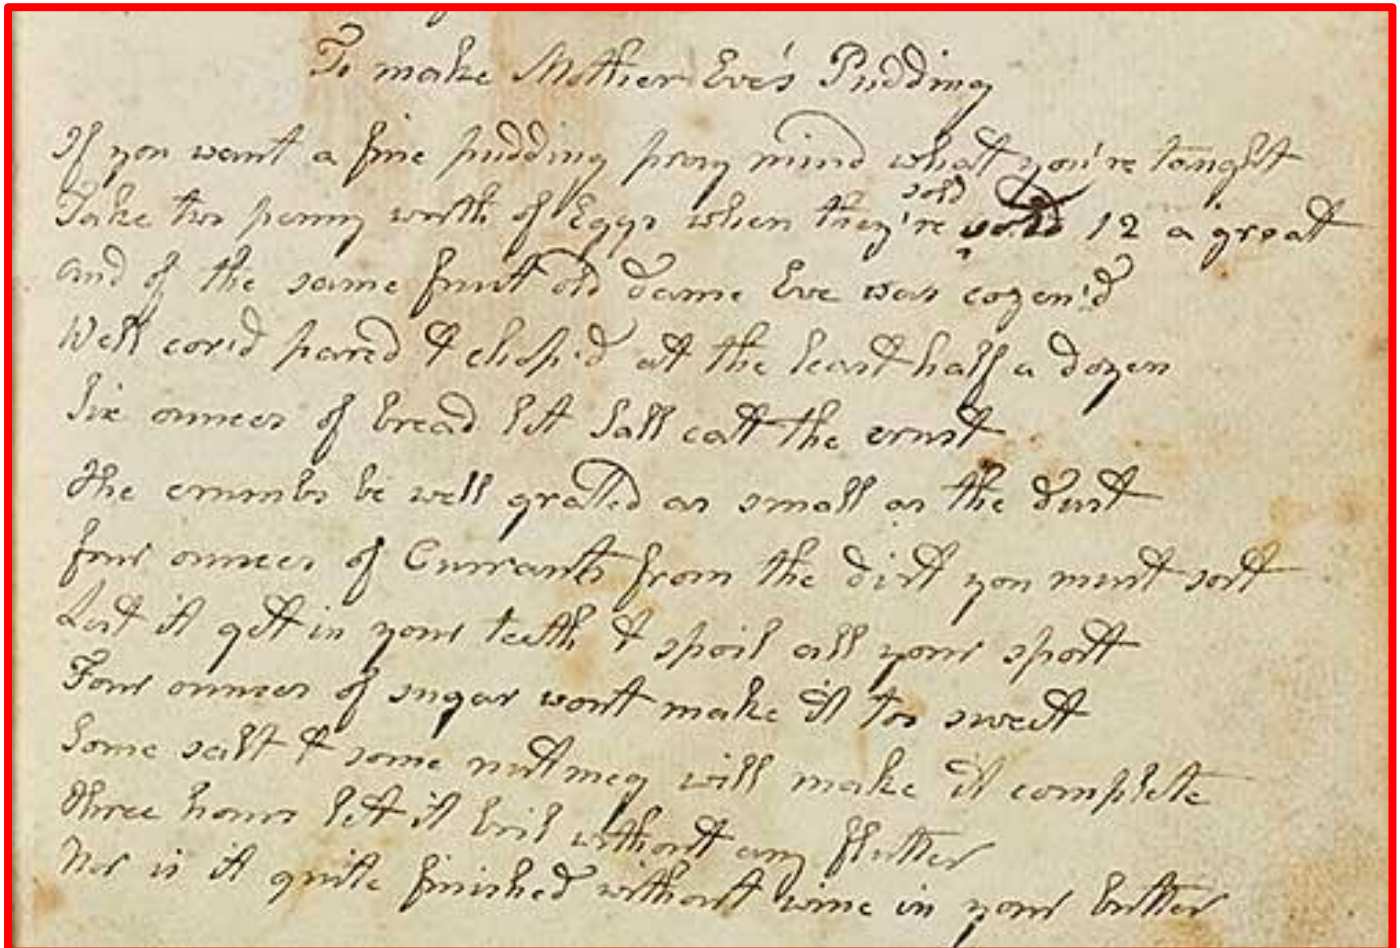 To make Mother Eve's Pudding
If you want a fine pudding pray mind what you're taught
Take two penny worth of Eggs when they're sold 12 a groat
and of the same fruit old dame Eve was cozen'd
Well cor'd pared & chop'd at the least half a dozen
Six ounces of bread let Sall eat the crust
The crumbs be well grated as small as the dust
four ounces of Currants from the dirt you must sort
Lest it get in your teeth & spoil all your sport
Four ounces of sugar wont make it too sweet
Some salt & some nutmeg will make it complete
Three hours let it boil without any flutter
Nor is it quite finished without wine in your butter